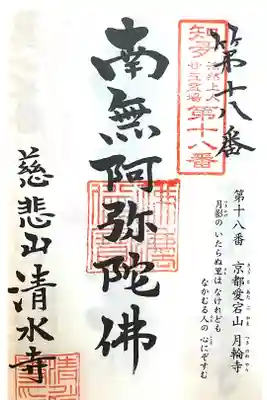 第十八番
知多
法然上人
廿五霊場
第十八番
南無阿弥陀佛
慈悲山清水寺
第十八番 京都愛宕山 月輪寺
月影の いたらぬ里は なけれども
なかむる人の 心にぞすむ